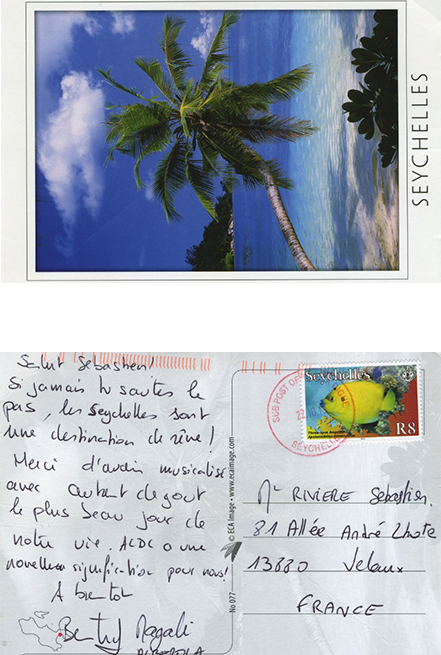 SEYCHELLES
Salut Sébastien!
Si jamais tu sautes le
pas, les Seychelles sont
une destination de rêve!
Merci d'avoir musicalisé
avec autant de goût
le plus beau jour de
notre vie. ACDC a une
nouvelle signification pour nous!
A bientôt
Magali
© ECA Image • www.ecaimage.com
No 077
SUB POST OFF
SEYCHELLES
Seychelles
R8
Mr RIVIERE Sébastien
81 Allée André Lhote
13880 Velaux
FRANCE